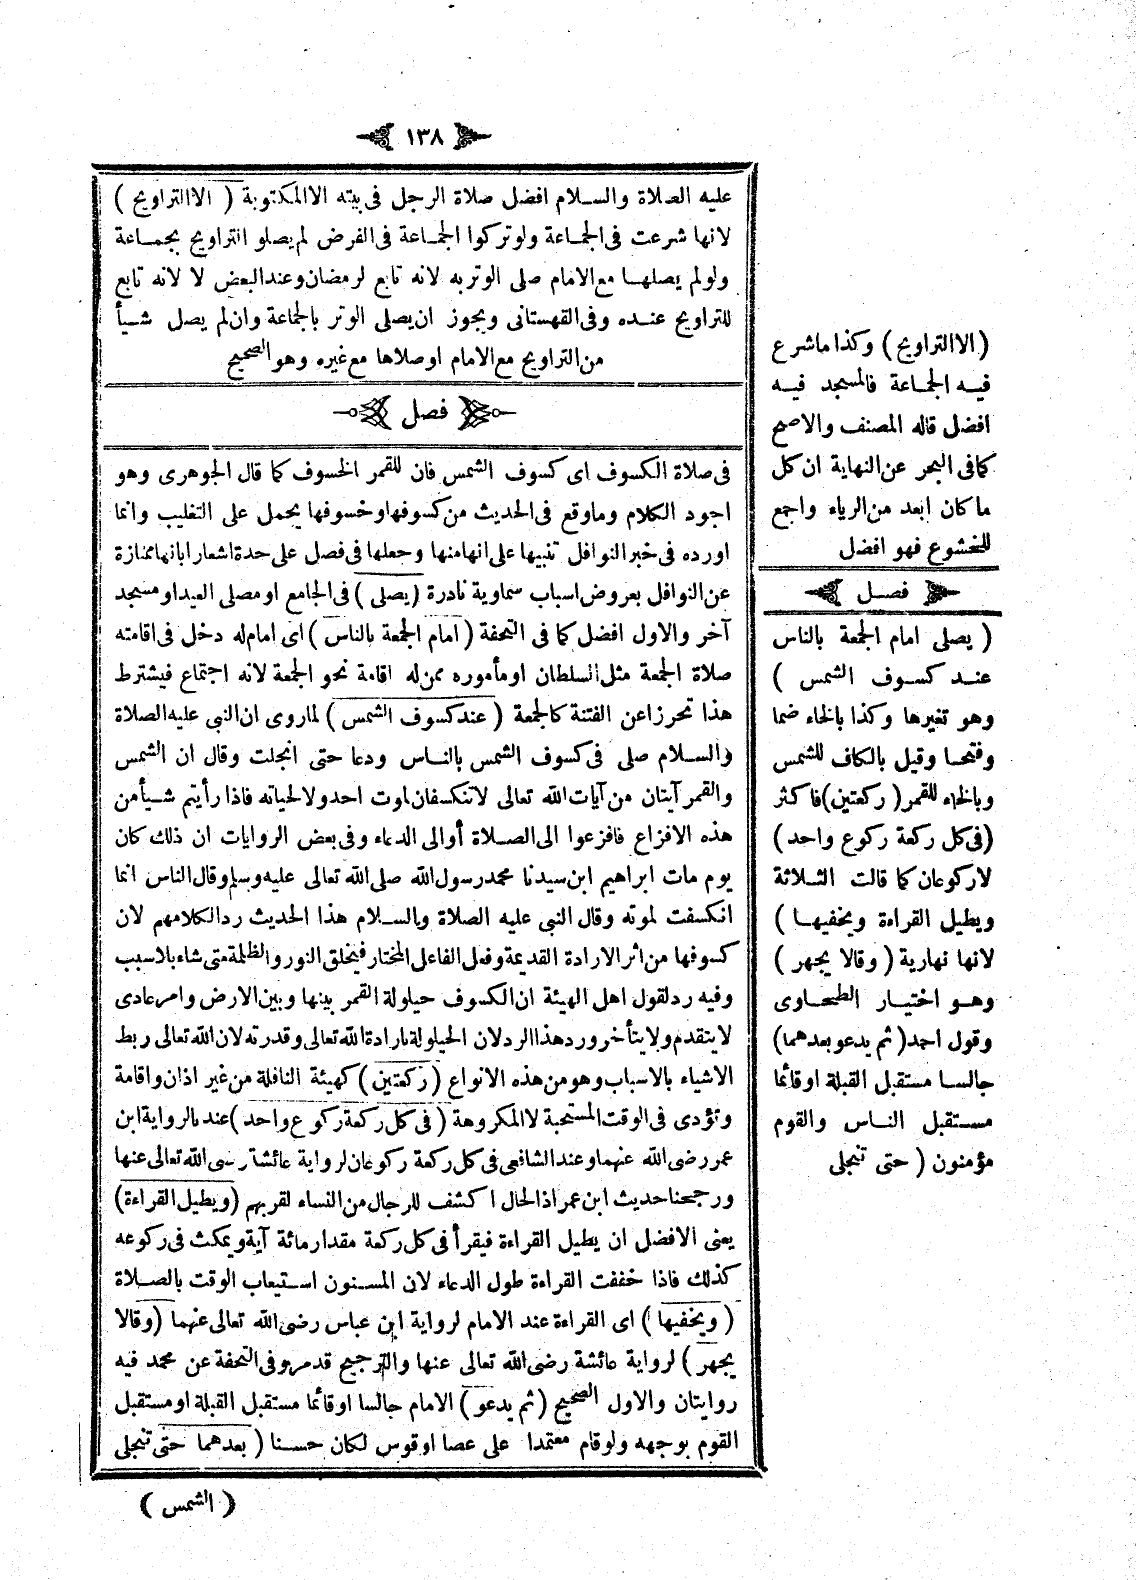 ١٣٨
عليه الصلاة والسلام افضل صلاة الرجل فى بيته الا المكتوبة ( الا التراويح )
لانها شرعت فى الجماعة ولو تركوا الجماعة فى الفرض لم يصلو التراويح بجماعة
ولو لم يصلها مع الامام صلى الوتر به لانه تابع لرمضان وعند البعض لا لانه تابع
للتراويح عنده وفى القهستانى ويجوز ان يصلى الوتر بالجماعة وان لم يصل شيأ
من التراويح مع الامام او صلاها مع غيره وهو الصحيح
فصل
فى صلاة الكسوف اى كسوف الشمس فان للقمر الخسوف كما قال الجوهرى وهو
اجود الكلام وما وقع فى الحديث من كسوفها وخسوفها يحمل على التغليب وانما
اورده فى خبر النوافل تنبيها على انهامنها وجعلها فى فصل على حدة اشعارا بانها ممتازة
عن النوافل بعروض اسباب سماوية نادرة ( يصلى ) فى الجامع او مصلى العيد او مسجد
آخر والاول افضل كما فى التحفة ( امام الجمعة بالناس ) اى امام له دخل فى اقامته
صلاة الجمعة مثل السلطان او مأموره ممن له اقامة نحو الجمعة لانه اجتماع فيشترط
هذا تحرزا عن الفتنة كالجمعة ( عند كسوف الشمس ) لما روى ان النبى عليه الصلاة
والسلام صلى فى كسوف الشمس بالناس ودعا حتى انجلت وقال ان الشمس
والقمر آيتان من آيات الله تعالى لا تنكسفان لموت احد ولا لحياته فاذا رأيتم شيأ من
هذه الافزاع فافزعوا الى الصلاة أو الى الدعاء وفى بعض الروايات ان ذلك كان
يوم مات ابراهيم ابن سيدنا محمد رسول الله صلى الله تعالى عليه وسلم وقال الناس انما
انكسفت لموته وقال النبى عليه الصلاة والسلام هذا الحديث ردا لكلامهم لان
كسوفها من اثر الارادة القديمة وفعل الفاعل المختار فيخلق النور والظلمة متى شاء بلا سبب
وفيه رد لقول اهل الهيئة ان الكسوف حيلولة القمر بينها وبين الارض وامر عادى
لا يتقدم ولا يتأخر ورد هذا الرد لان الحيلولة بارادة الله تعالى وقدرته لان الله تعالى ربط
الاشياء بالاسباب وهو من هذه الانواع ( ركعتين ) كهيئة النافلة من غير اذان واقامة
وتؤدى فى الوقت المستحبة لا المكروهة ( فى كل ركعة ركوع واحد ) عندنا لرواية ابن
عمر رضى الله عنهما وعند الشافعى فى كل ركعة ركوعان لرواية عائشة رضى الله تعالى عنها
ورجحنا حديث ابن عمر اذ الحال اكشف للرجال من النساء لقربهم ( ويطيل القراءة )
يعنى الافضل ان يطيل القراءة فيقرأ فى كل ركعة مقدار مائة آية ويمكث فى ركوعه
كذلك فاذا خففت القراءة طول الدعاء لان المسنون استيعاب الوقت بالصلاة
( ويخفيها ) اى القراءة عند الامام لرواية ابن عباس رضى الله تعالى عنهما ( وقالا
يجهر ) لرواية عائشة رضى الله تعالى عنها والترجيح قد مر وفى التحفة عن محمد فيه
روايتان والاول الصحيح ( ثم يدعو ) الامام جالسا او قائما مستقبل القبلة او مستقبل
القوم بوجهه ولو قام معتمدا على عصا او قوس لكان حسنا ( بعدهما حتى تنجلى
( الشمس )
( الا التراويح ) وكذا ما شرع
فيه الجماعة فالمسجد فيه
افضل قاله المصنف والاصح
كما فى البحر عن النهاية ان كل
ما كان ابعد من الرياء واجمع
للخشوع فهو افضل
فصل
( يصلى امام الجمعة بالناس
عند كسوف الشمس )
وهو تغيرها وكذا بالخاء ضما
وفتحا وقيل بالكاف للشمس
وبالخاء للقمر ( ركعتين ) فاكثر
( فى كل ركعة ركوع واحد )
لا ركوعان كما قالت الثلاثة
ويطيل القراءة ويخفيها )
لانها نهارية ( وقالا يجهر )
وهو اختيار الطحاوى
وقول احمد ( ثم يدعو بعدهما )
جالسا مستقبل القبلة او قائما
مستقبل الناس والقوم
مؤمنون ( حتى تنجلى